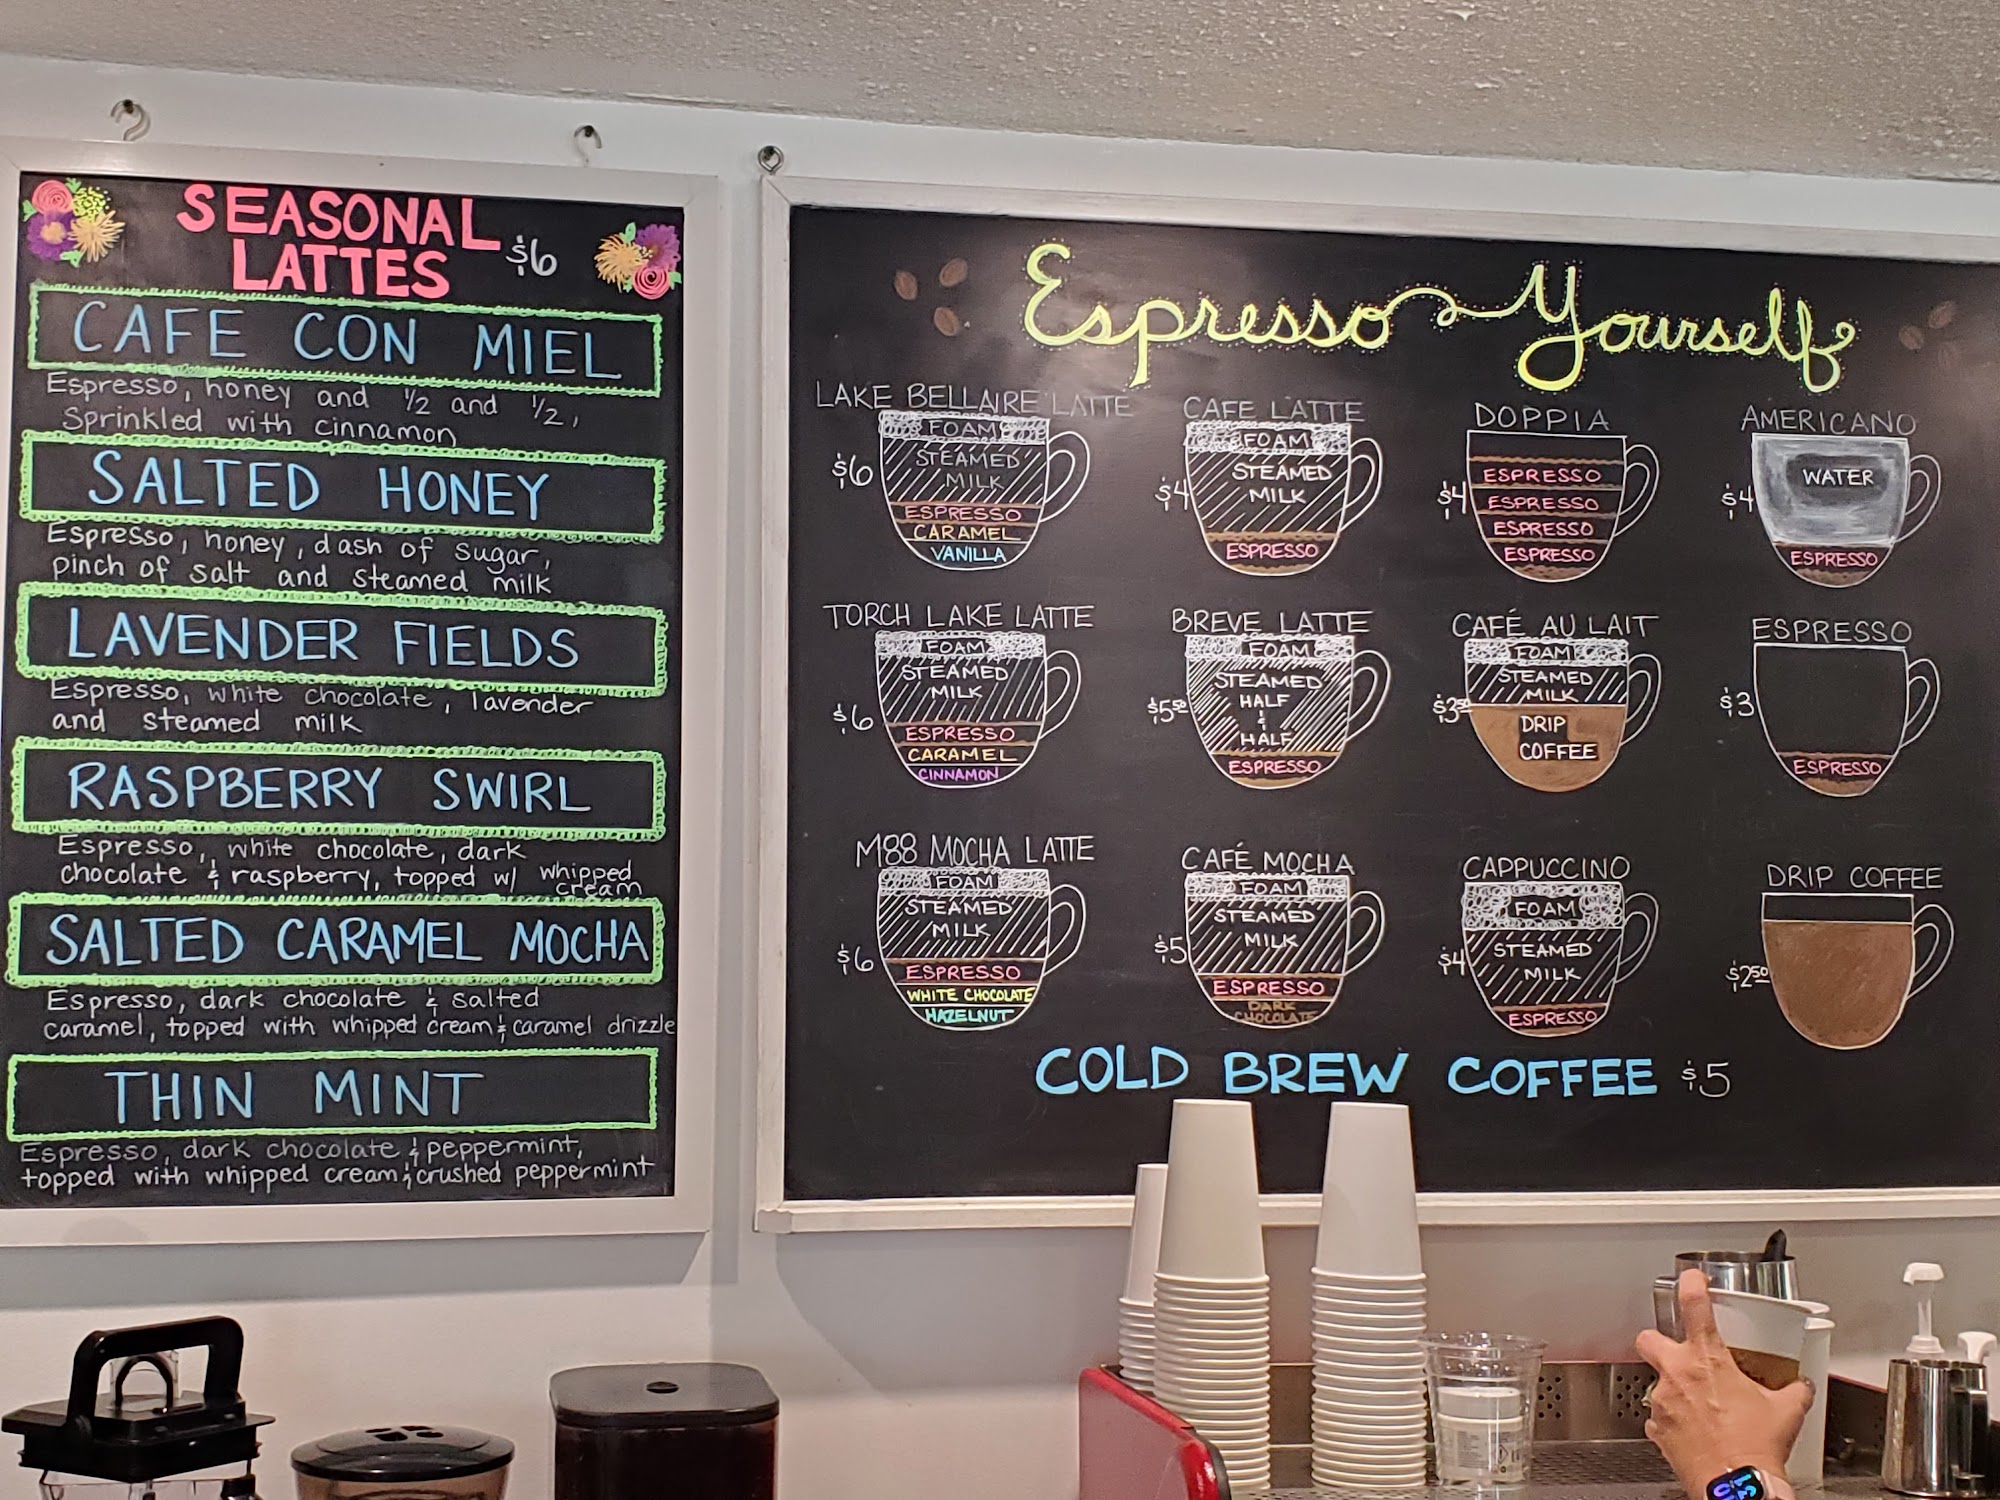 SEASONAL
LATTES $6
CAFE CON MIEL
Espresso, honey and 1/2 and 1/2,
Sprinkled with cinnamon
SALTED HONEY
Espresso, honey, dash of sugar,
pinch of salt and steamed milk
LAVENDER FIELDS
Espresso, white chocolate, lavender
and steamed milk
RASPBERRY SWIRL
Espresso, white chocolate, dark
chocolate & raspberry, topped w/ whipped
cream
SALTED CARAMEL MOCHA
Espresso, dark chocolate & salted
caramel, topped with whipped cream & caramel drizzle
THIN MINT
Espresso, dark chocolate & peppermint,
topped with whipped cream & crushed peppermint
Espresso Yourself
LAKE BELLAIRE LATTE
$6
FOAM
STEAMED
MILK
ESPRESSO
CARAMEL
VANILLA
CAFE LATTE
$4
FOAM
STEAMED
MILK
ESPRESSO
DOPPIA
$4
ESPRESSO
ESPRESSO
ESPRESSO
ESPRESSO
AMERICANO
$4
WATER
ESPRESSO
TORCH LAKE LATTE
$6
FOAM
STEAMED
MILK
ESPRESSO
CARAMEL
CINNAMON
BREVE LATTE
$5.50
FOAM
STEAMED
HALF
&
HALF
ESPRESSO
CAFÉ AU LAIT
$3.50
FOAM
STEAMED
MILK
DRIP
COFFEE
ESPRESSO
$3
ESPRESSO
M88 MOCHA LATTE
$6
FOAM
STEAMED
MILK
ESPRESSO
WHITE CHOCOLATE
HAZELNUT
CAFÉ MOCHA
$5
FOAM
STEAMED
MILK
ESPRESSO
DARK
CHOCOLATE
CAPPUCCINO
$4
FOAM
STEAMED
MILK
ESPRESSO
DRIP COFFEE
$2.50
COLD BREW COFFEE $5